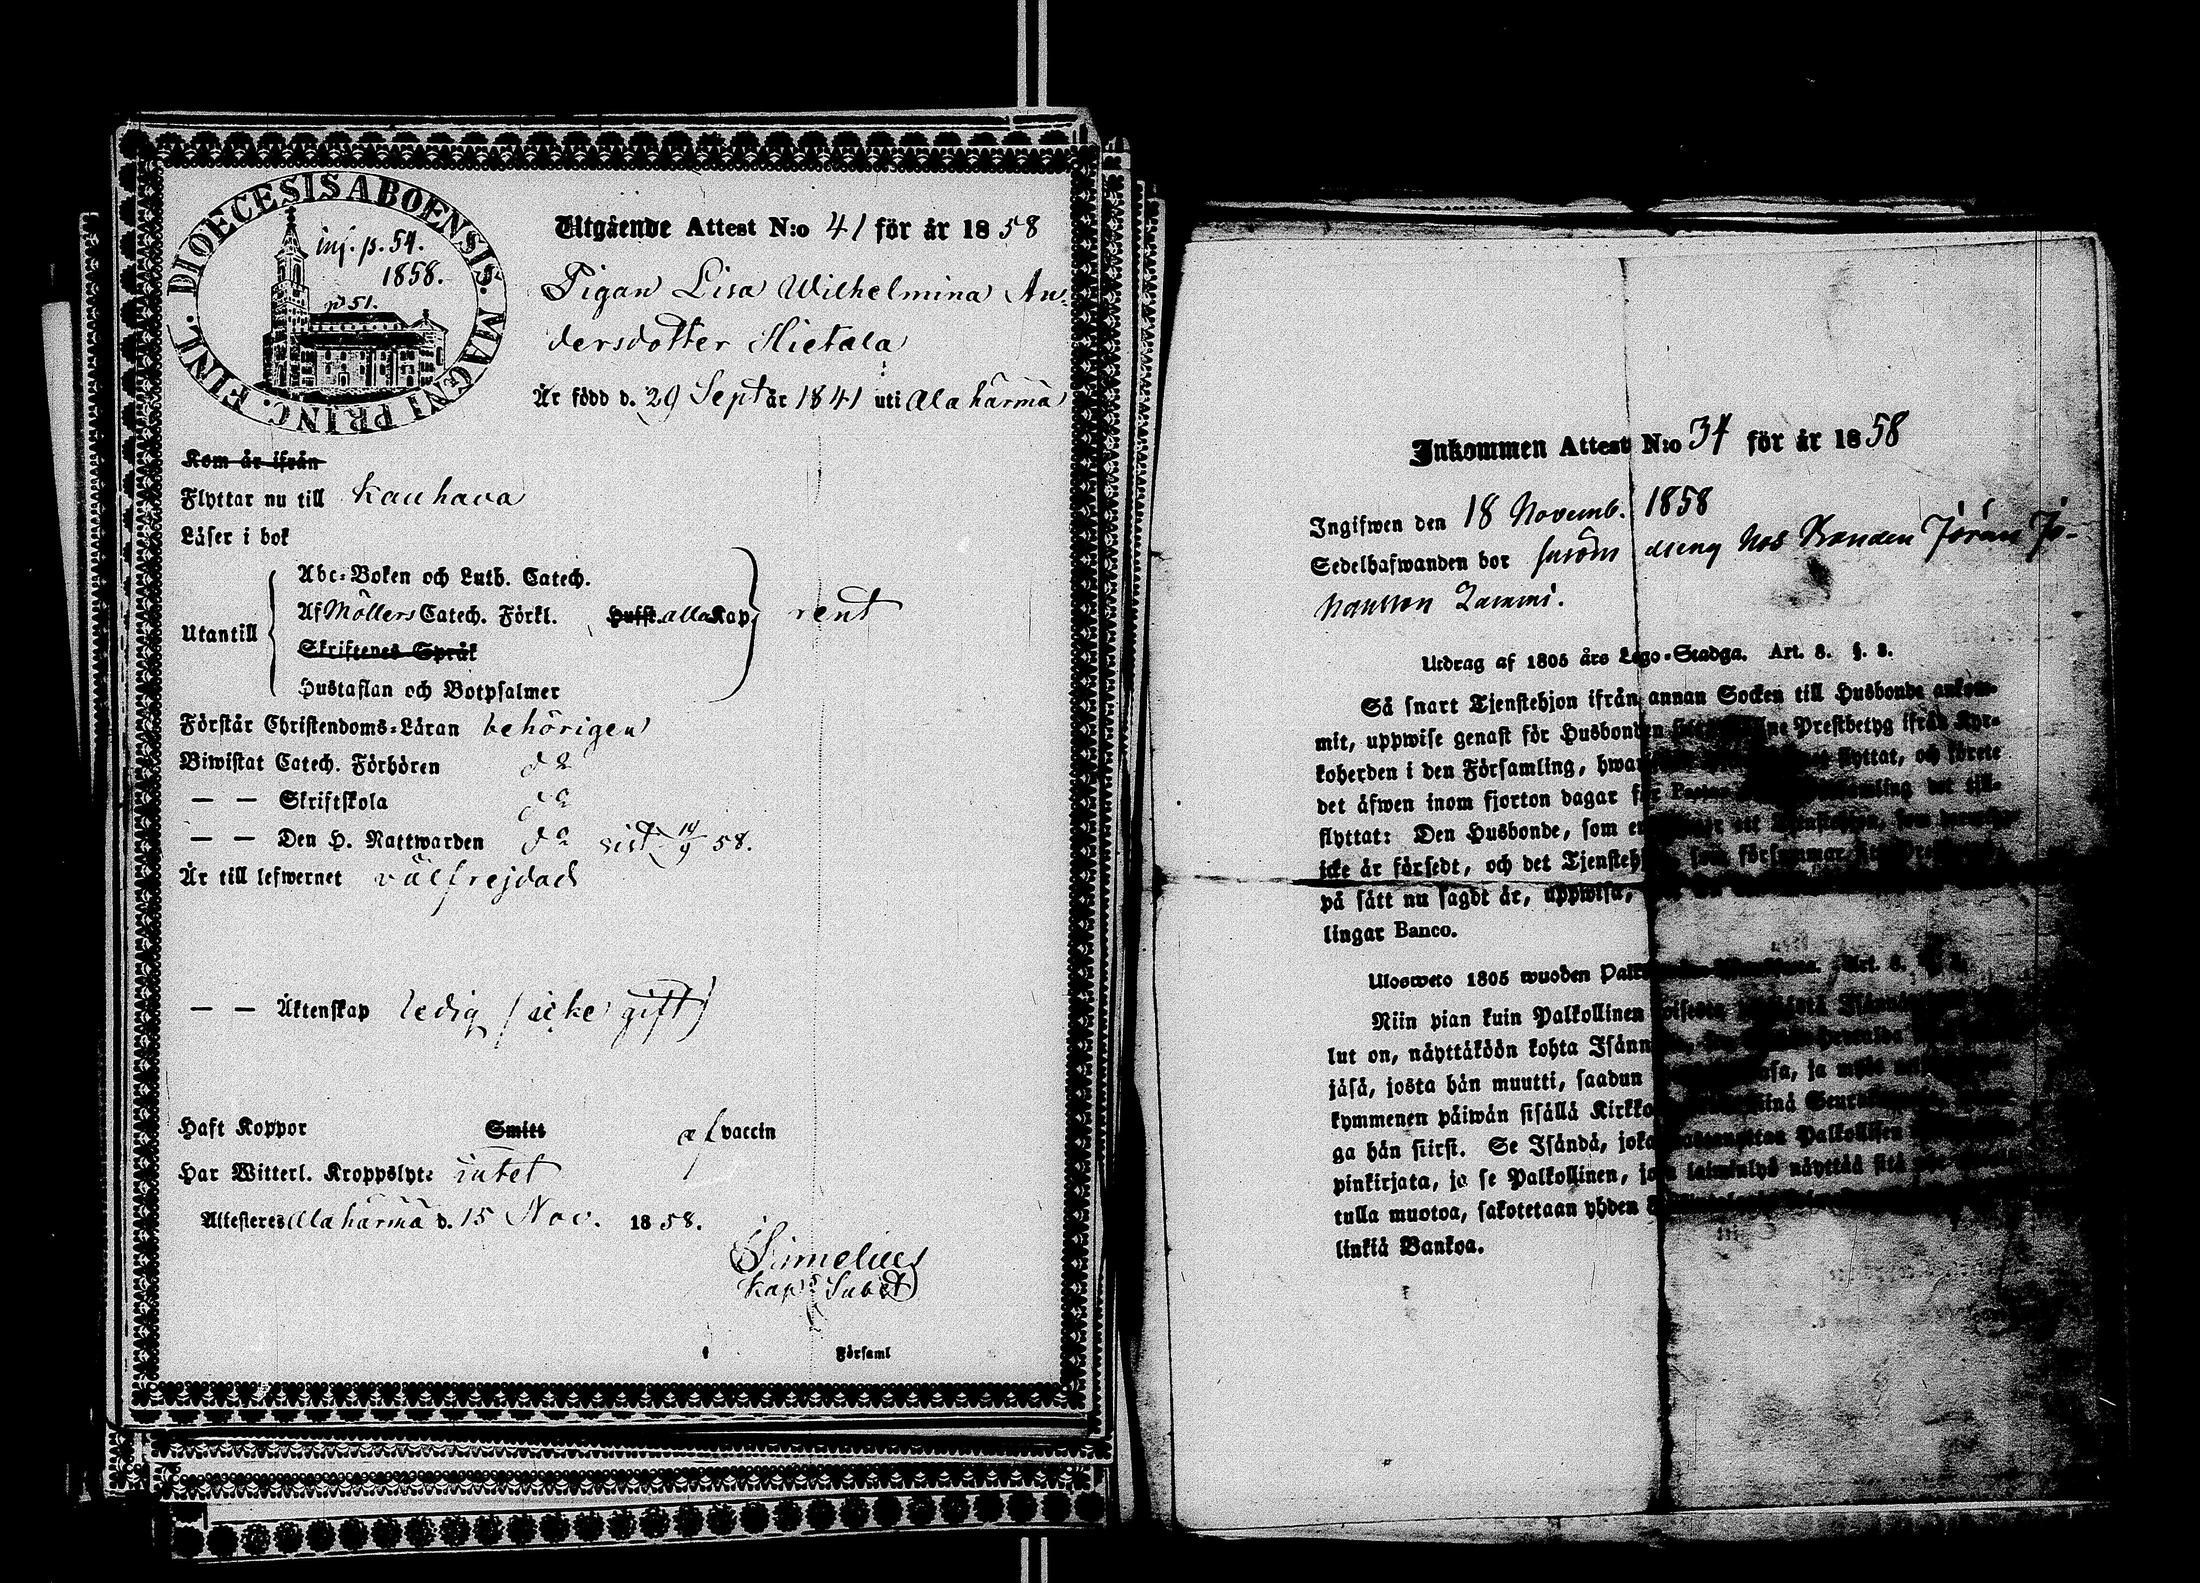 DIOECESIS ABOENSIS. MAGNI PRINC. FINL.
inf. p. 54.
1858.
p 51.
Utgående Attest N:o 41 för år 1858
Pigan Lisa Wilhelmina An-
dersdotter Hietala
Är född d. 29 Sept år 1841 uti Alahärmä
Kom år ifrån
Flyttar nu till Kauhava
Läser i bok
Abc-Boken och Luth. Catech.
Utantill Af Möllers Catech. Förkl. Hufst. alla Kap. rent
Skriftenes Språk
Hustaflan och Botpsalmer
Förstår Christendoms-Läran behörigen
Biwistat Catech. Förhören do
— — Skriftskola do
— — Den H. Nattwarden do sist 19/9 58.
Är till lefwernet välfrejdad
— — Äktenskap ledig (icke gift)
Haft Koppor Smitt af vaccin
Har Witterl. Kroppslyte intet
Attesteras Alahärmä d. 15 Nov. 1858.
Simelius
Kap. Subst
Församl
Inkommen Attest N:o 34 för år 1858
Ingifwen den 18 Novemb. 1858
Sedelhafwanden bor såsom dieng hos Bonden Jöran Jö-
hansson Lammi.
Utdrag af 1805 års Lego-Stadga. Art. 8. §. 8.
Så snart Tjenstehjon ifrån annan Socken till Husbonde ankom-
mit, uppwise genast för Husbonden Prestbetyg ifrån Kyr-
koherden i den Församling, flyttat, och förete
det äfwen inom fjorton dagar för det till-
flyttat: Den Husbonde, som
icke är försedt, och det Tjenstehjon, som försummar
på sätt nu sagdt är, uppwisa,
lingar Banco.
Ulosweto 1805 wuoden Art. 8. §. 8.
Niin pian kuin Palkollinen toisesta
lut on, näyttäköön kohta Isännälle,
jäsä, josta hän muutti, saadun ja myös
kymmenen päiwän sisällä
ga hän siirsi. Se Isändä, joka Palkollisen
pinkirjata, ja se Palkollinen, joka laiminlyö näyttää sitä
tulla muotoa, sakotetaan yhden
linkiä Bankoa.